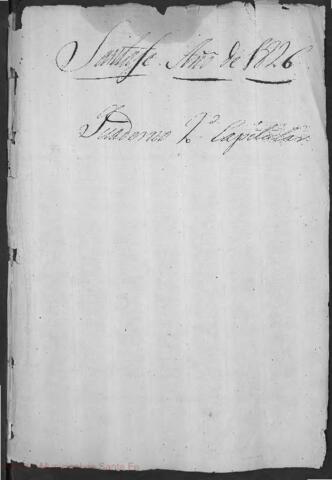 Santafe. Año de 1826
Cuaderno 2º Capitular
Santa Fe